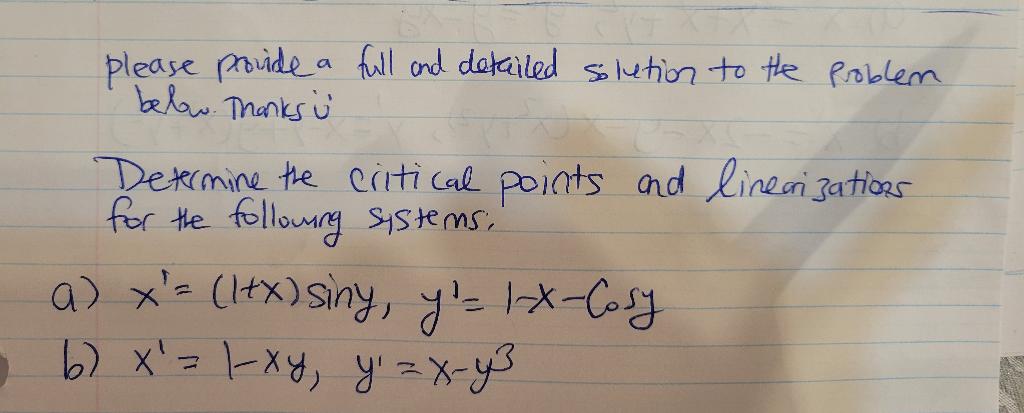 please provide a full and detailed solution to the Problem
below. Thanks ü
Determine the critical points and linearizations
for the following systems:
a) x' = (1+x) siny, y' = 1-x-Cosy
b) x' = 1-xy, y' = x-y³